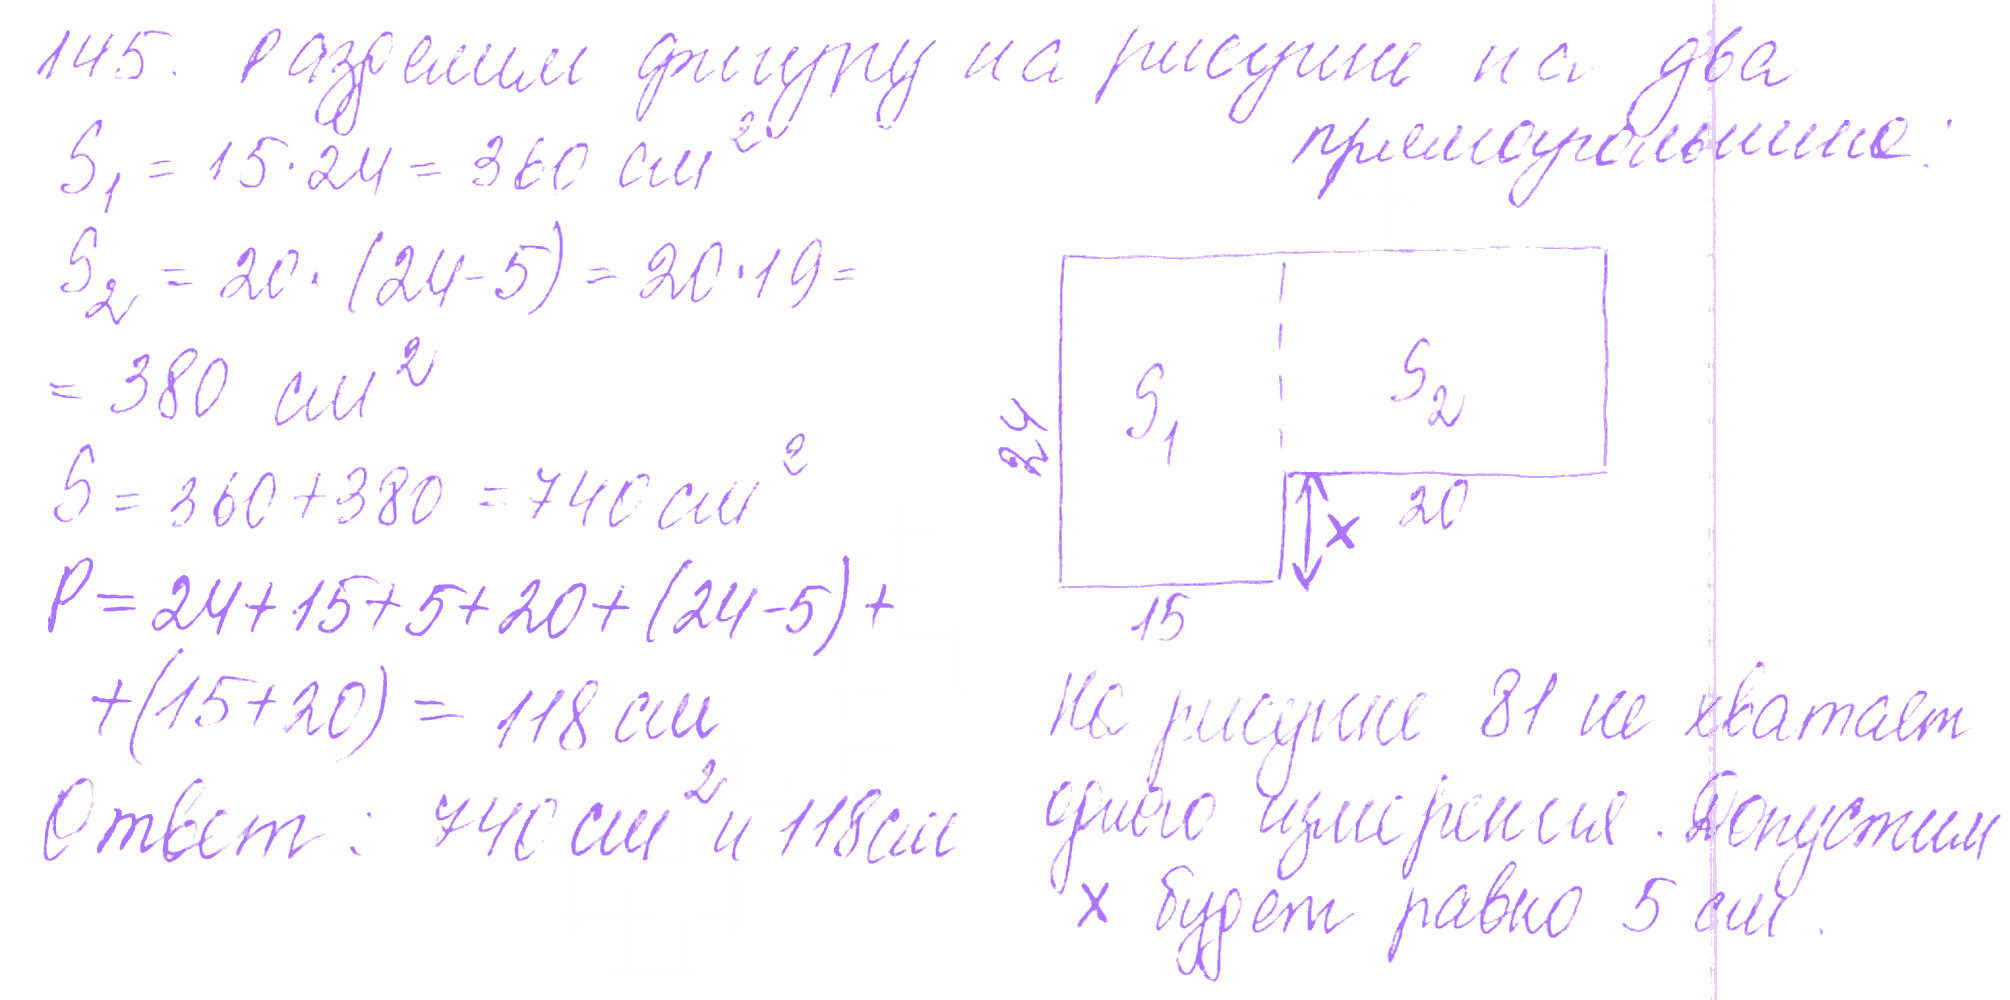 145. Разделим фигуру на рисунке на два
прямоугольника:
S₁ = 15·24 = 360 см²
S₂ = 20·(24-5) = 20·19 =
= 380 см²
S = 360+380 = 740 см²
P = 24+15+5+20+(24-5)+
+(15+20) = 118 см
Ответ: 740 см² и 118 см
S₁
S₂
24
20
x
15
На рисунке 81 не хватает
одного измерения. Допустим
x будет равно 5 см.